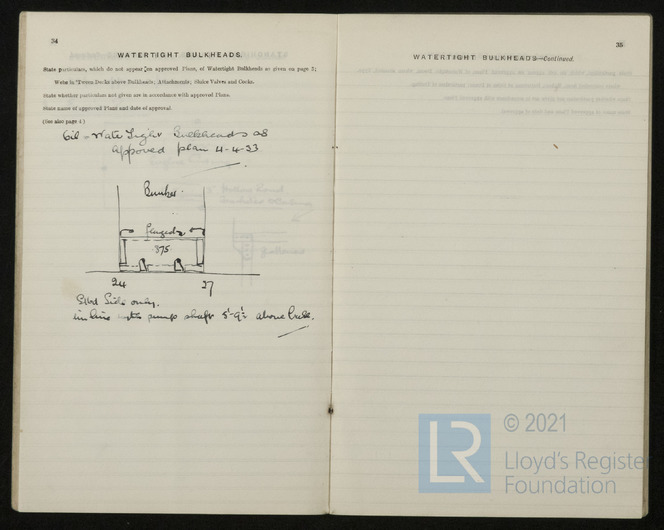 34
WATERTIGHT BULKHEADS.
State particulars, which do not appear on approved Plans, of Watertight Bulkheads as given on page 3;
Webs in 'Tween Decks above Bulkheads, Attachments; Sluice Valves and Cocks.
State whether particulars not given are in accordance with approved Plans.
State name of approved Plans and date of approval.
(See also page 4.)
Oil & Water Tight Bulkheads as
approved plan 4-4-33
Bunker.
flanged
.375
24
27
Stbd Side only.
in line pump shaft 5'-9" above
35
WATERTIGHT BULKHEADS—Continued.
© 2021
LR
Lloyd's Register
Foundation